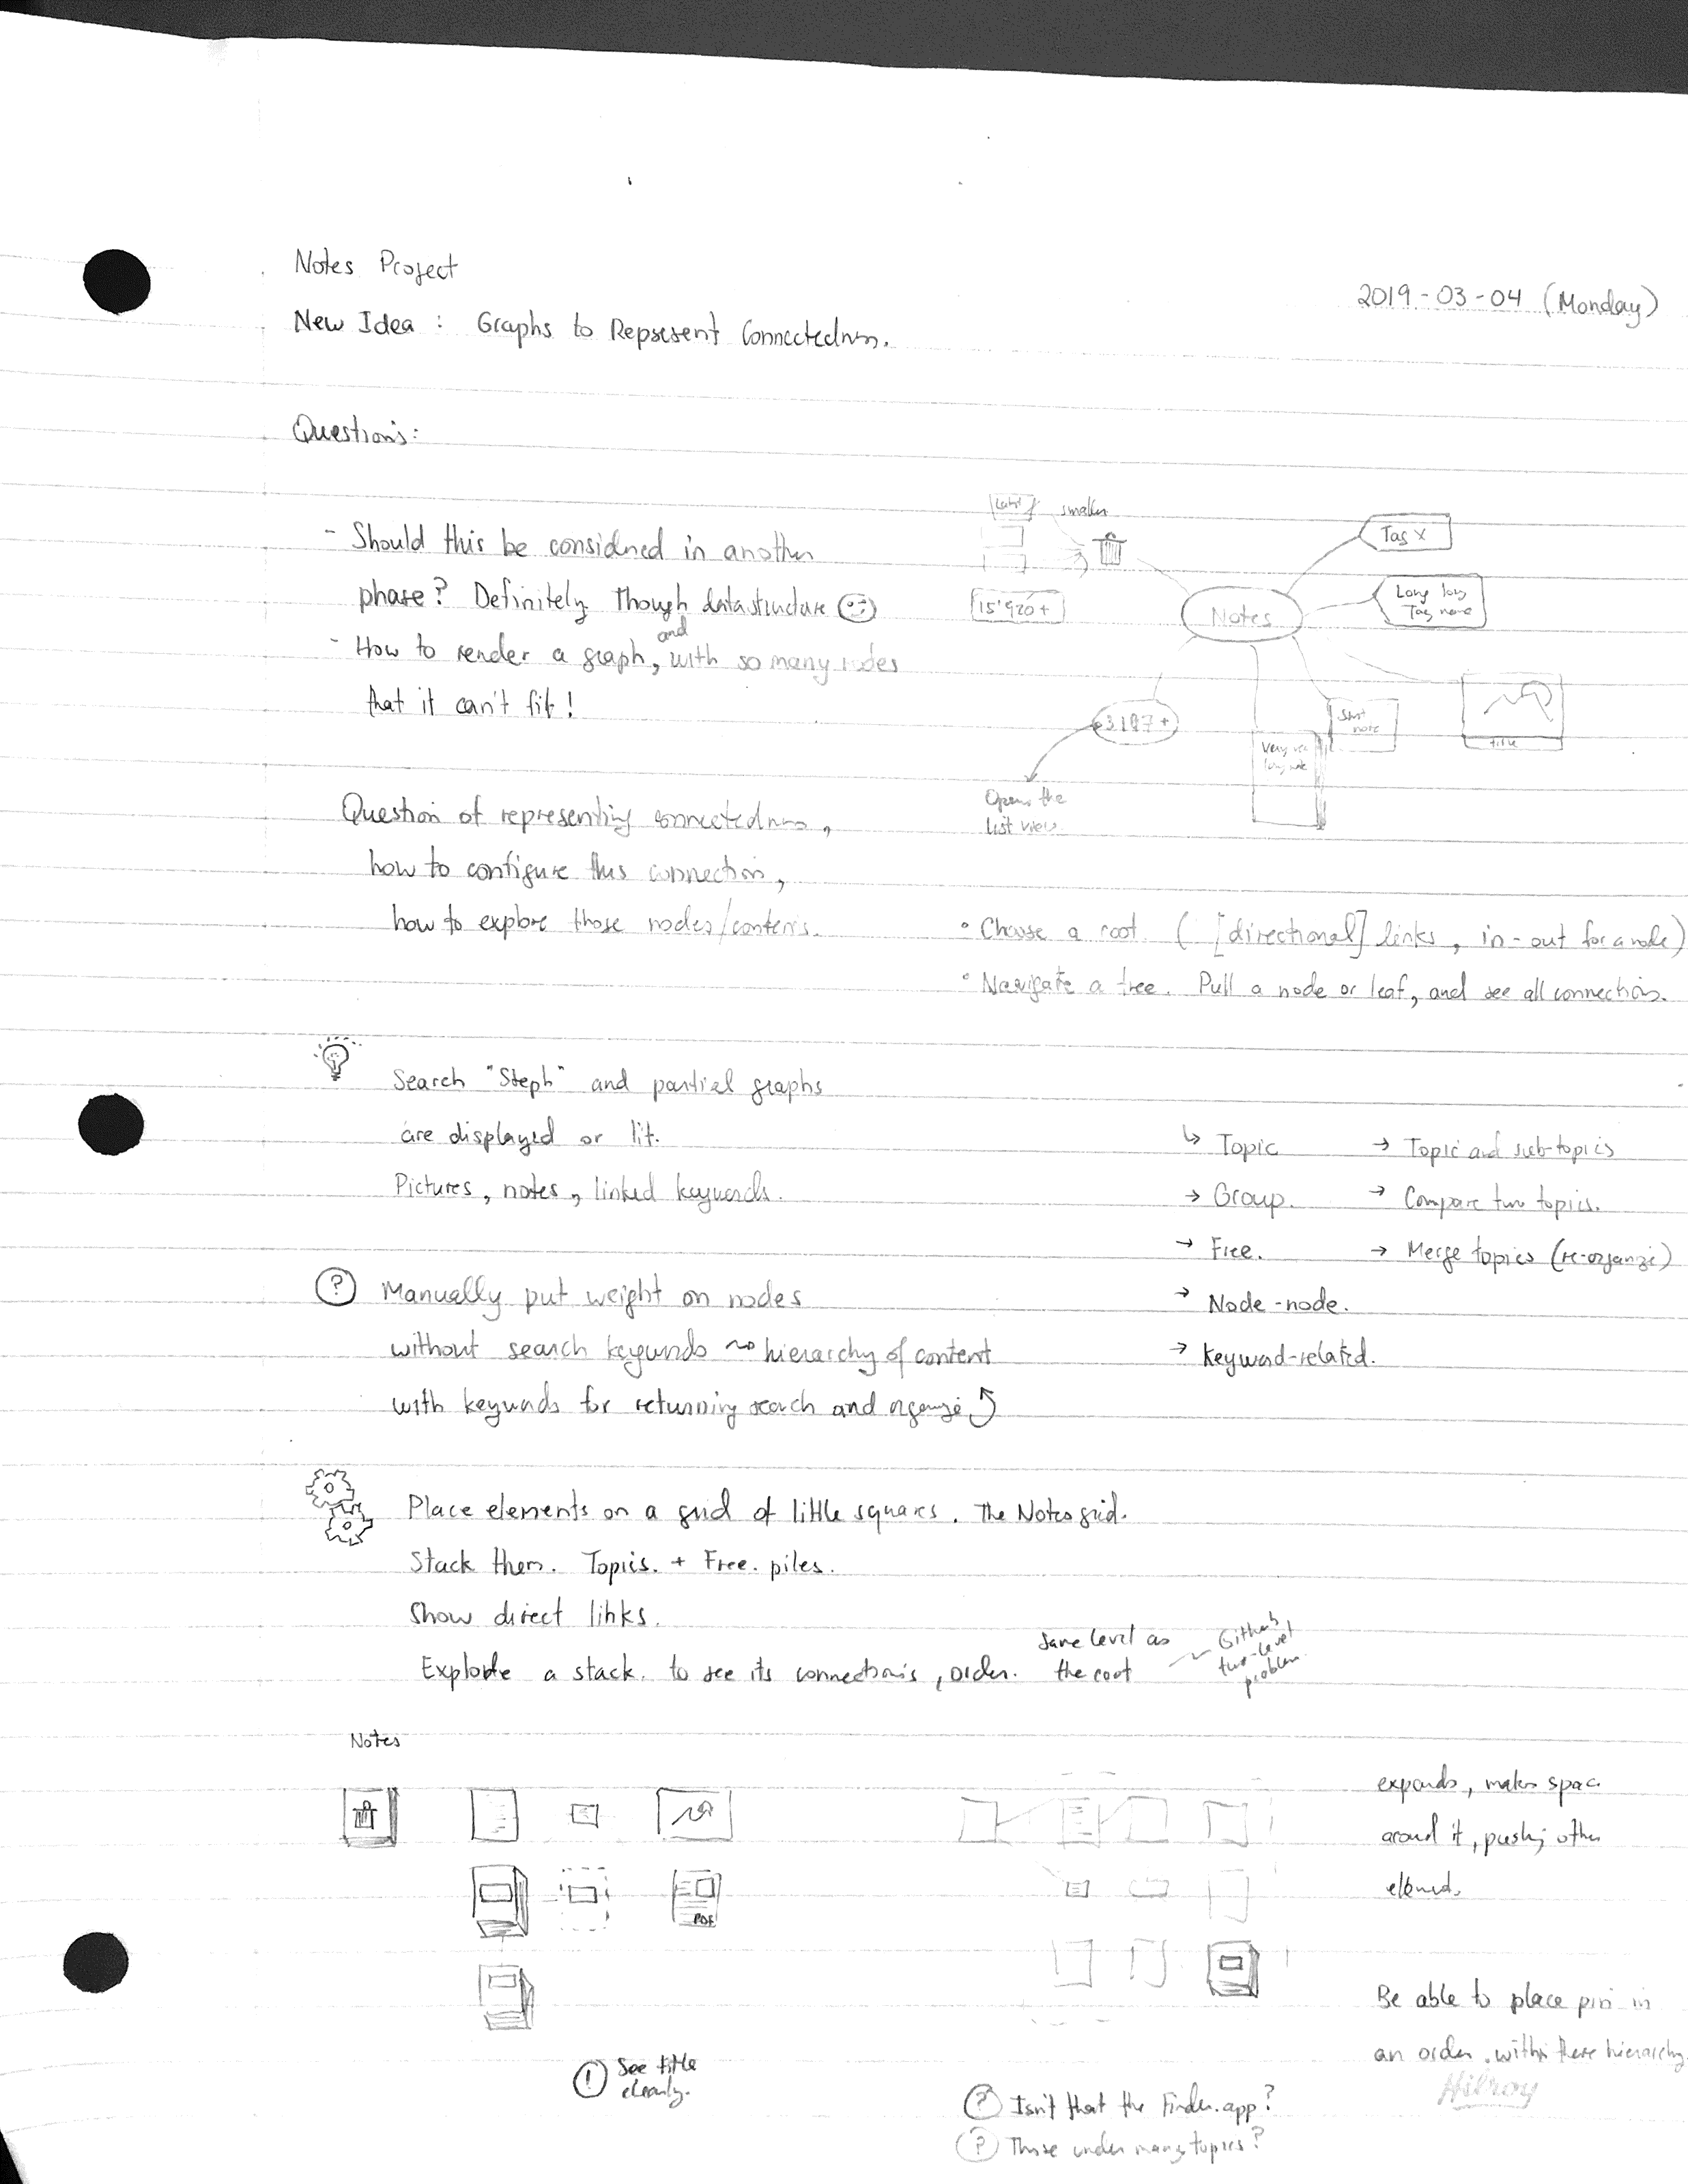 Notes Project
2019-03-04 (Monday)
New Idea : Graphs to Represent Connectedness.
Questions:
- Should this be considered in another
phase? Definitely Though datastructure
- How to render a graph, and with so many nodes
that it can't fit!
Label
smaller
15'920+
Notes
Tag X
Long long
Tag name
3187+
Opens the
list view
Very ver
long note
Short
note
title
Question of representing connectedness,
how to configure this connection,
how to explore those nodes/contents.
• Choose a root. ([directional] links, in-out for a node)
• Navigate a tree. Pull a node or leaf, and see all connections.
Search "Steph" and partial graphs
are displayed or lit.
Pictures, notes, linked keywords.
↳ Topic
→ Group.
→ Free.
→ Node-node.
→ Keyword-related.
→ Topic and sub-topics
→ Compare two topics.
→ Merge topics (re-organize)
? Manually put weight on nodes
without search keywords ~> hierarchy of content
with keywords for returning search and organize
Place elements on a grid of little squares. The Notes grid.
Stack them. Topics. + Free. piles.
Show direct links.
Explode a stack. to see its connections, order.
Same level as
the root
Github
two-level
problem
Notes
PDF
! See title
clearly.
expands, makes space
around it, pushing other
element.
Be able to place pin in
an order. within there hierarchy
Hilroy
? Isn't that the Finder.app?
? Those under many topics?